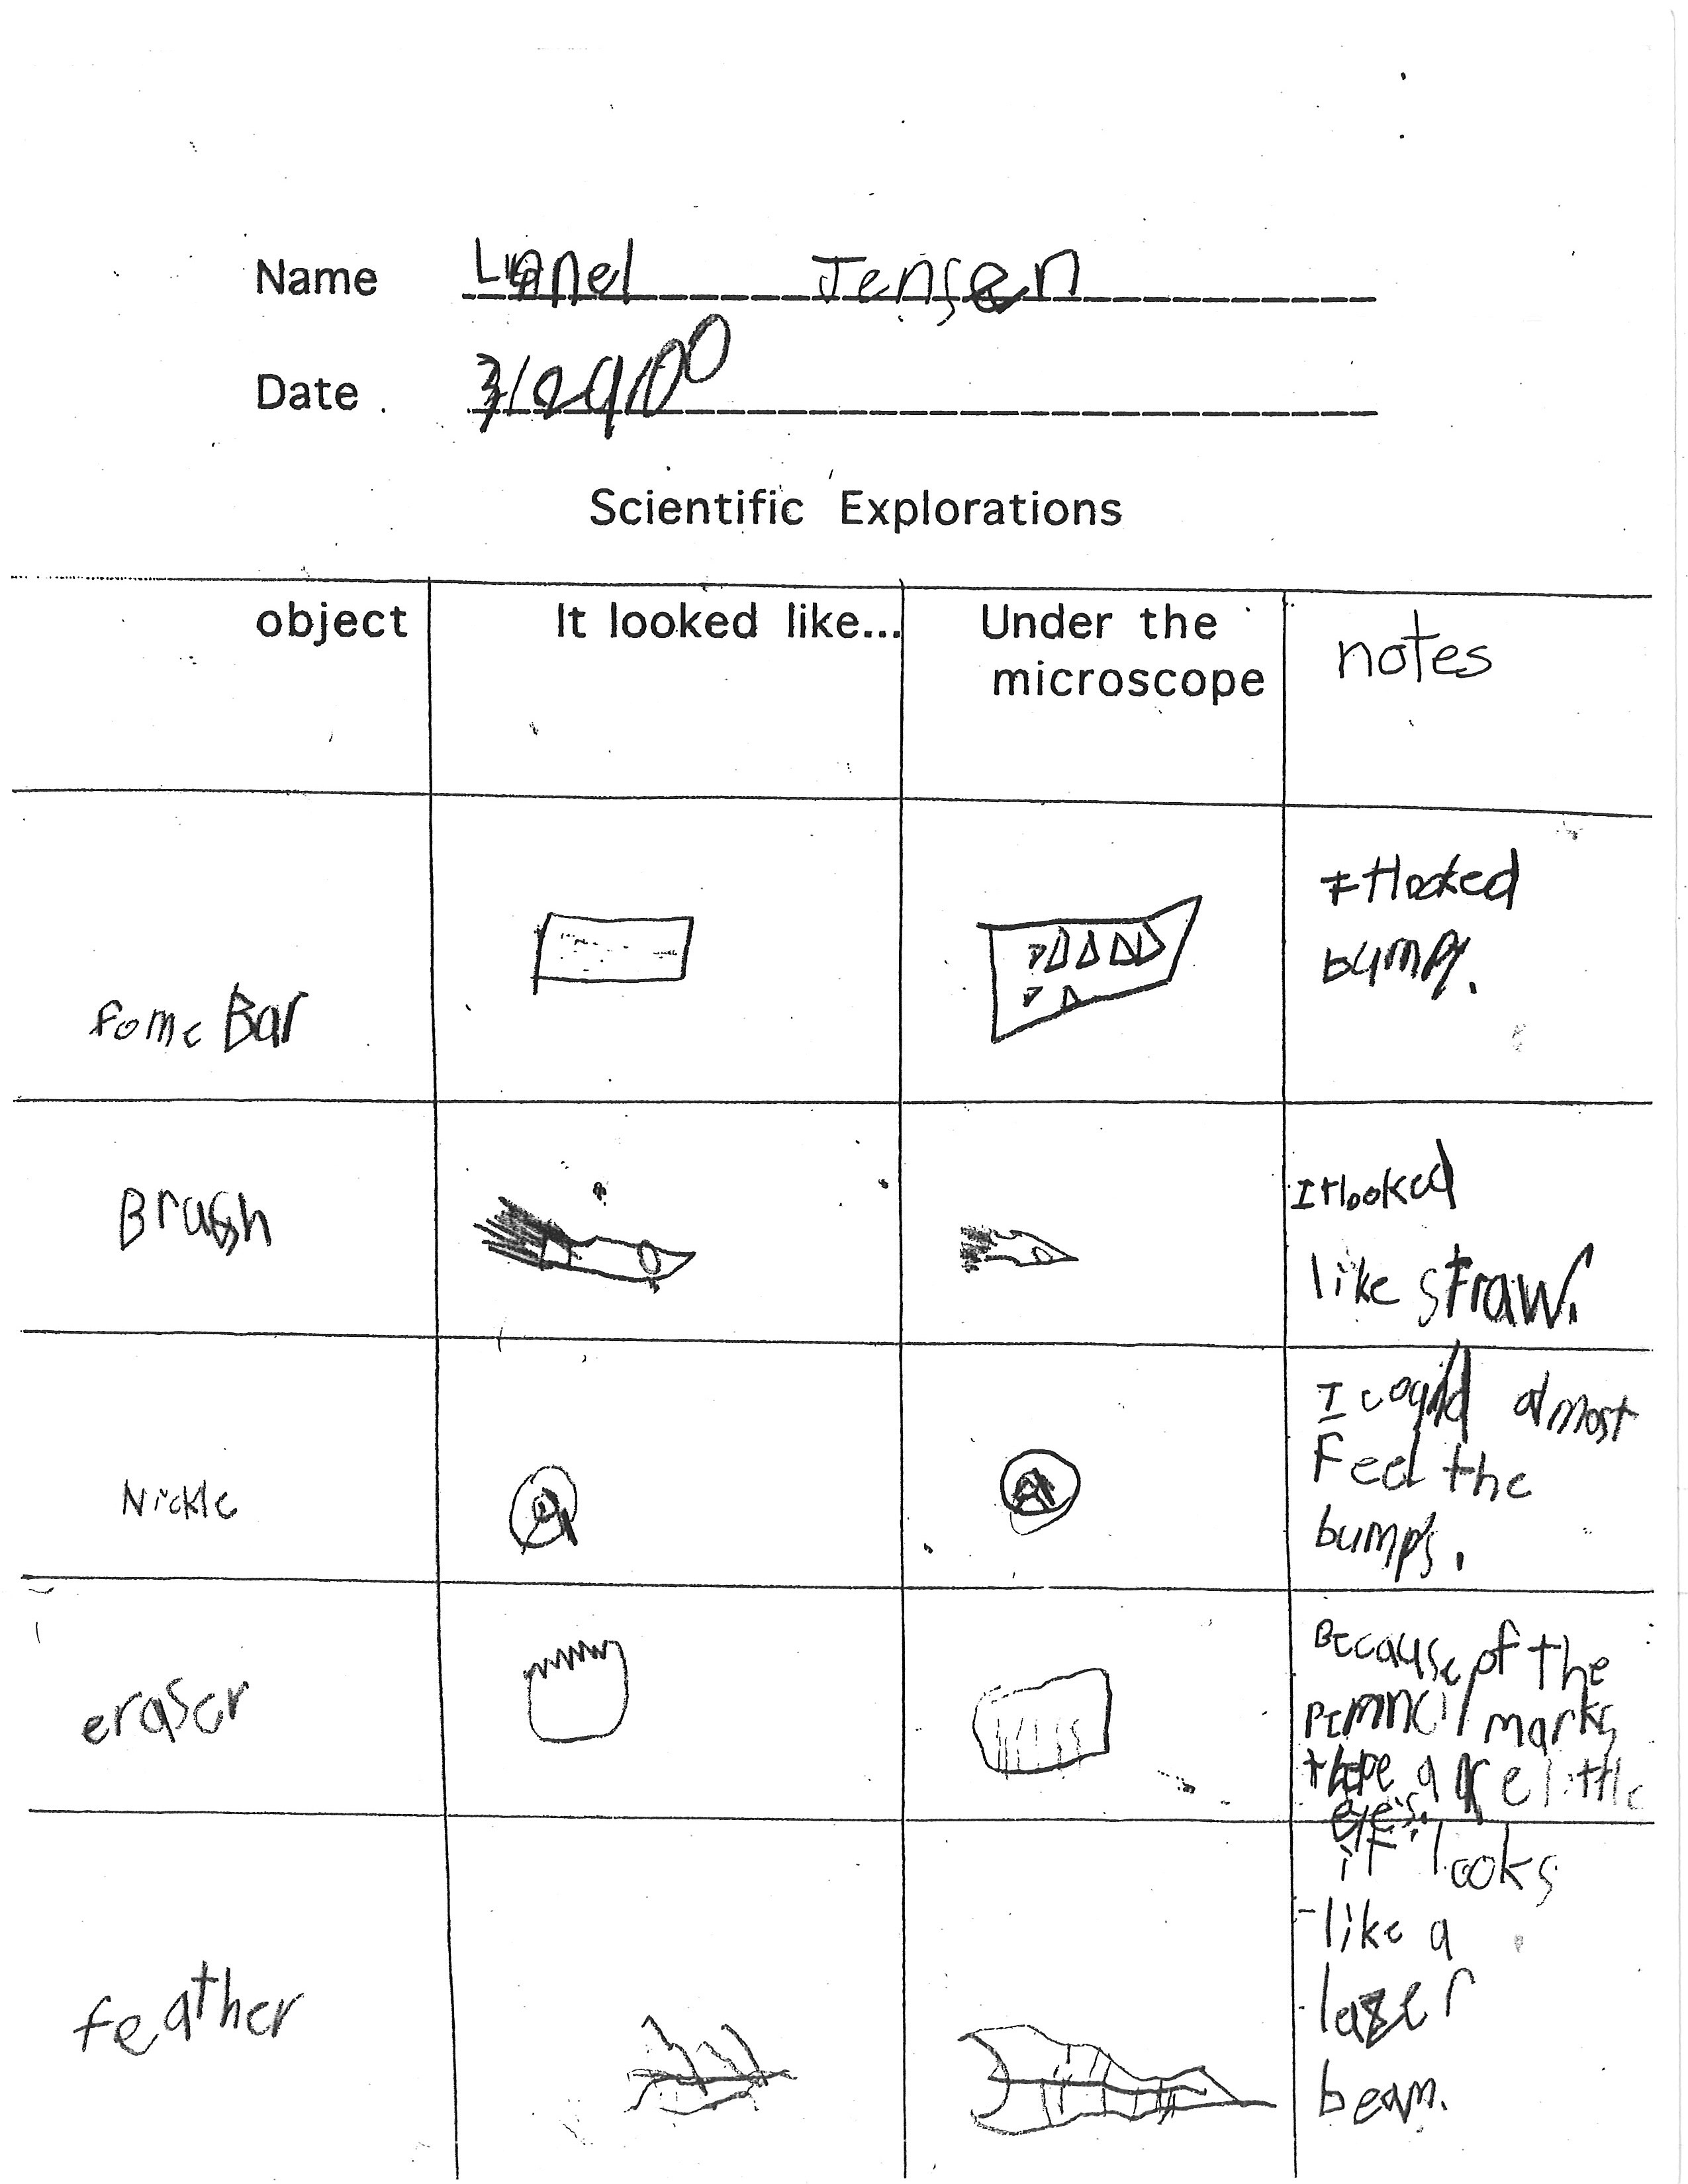 Name Lionel Jensen
Date 3/29/00
Scientific Explorations
object
It looked like...
Under the
microscope
notes
fome Bar
It looked
bumpy.
Brush
It looked
like straw.
Nickle
I could almost
Feel the
bumps.
eraser
Because of the
marks
there are little
eyes.
feather
it looks
like a
lazer
beam.